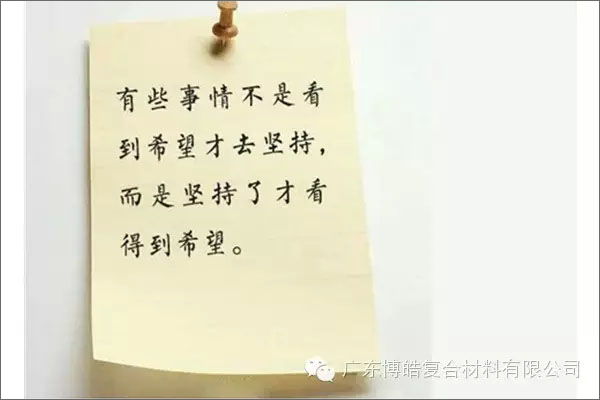 有些事情不是看
到希望才去坚持，
而是坚持了才看
得到希望。
广东博皓复合材料有限公司